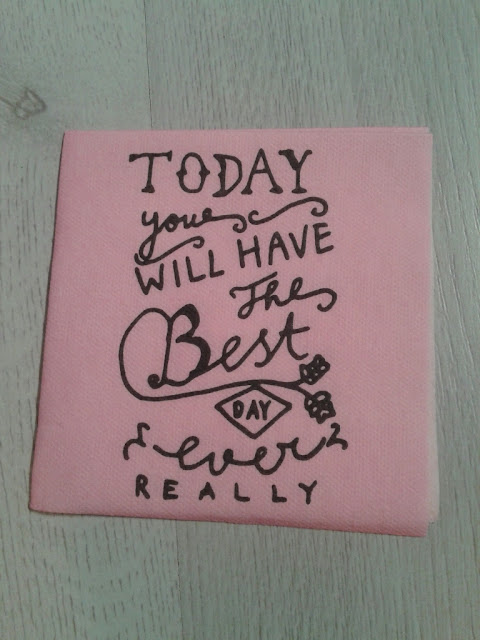 TODAY
you
WILL HAVE
The
Best
DAY
ever
REALLY